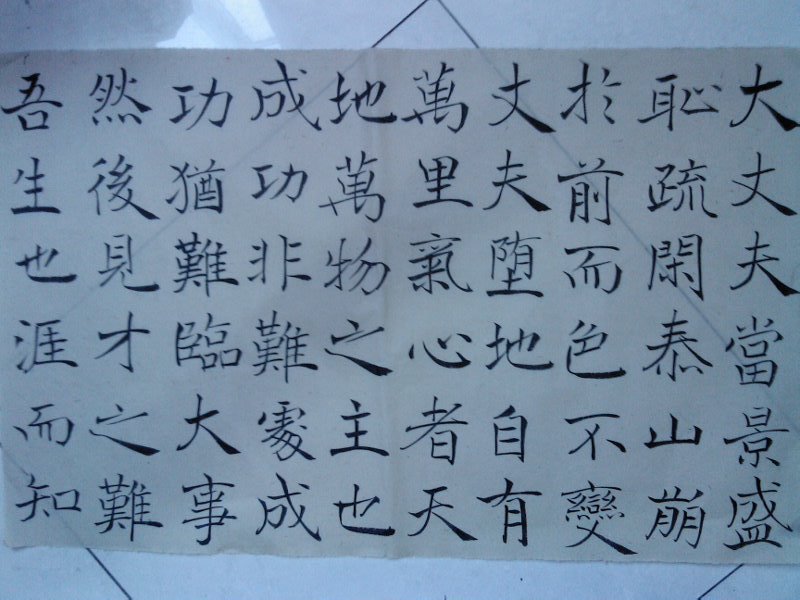 大丈夫當景盛
恥疏閑泰山崩
於前而色不變
丈夫墮地自有
萬里氣心者天
地萬物之主也
成功非難處成
功猶難臨大事
然後見才之難
吾生也涯而知